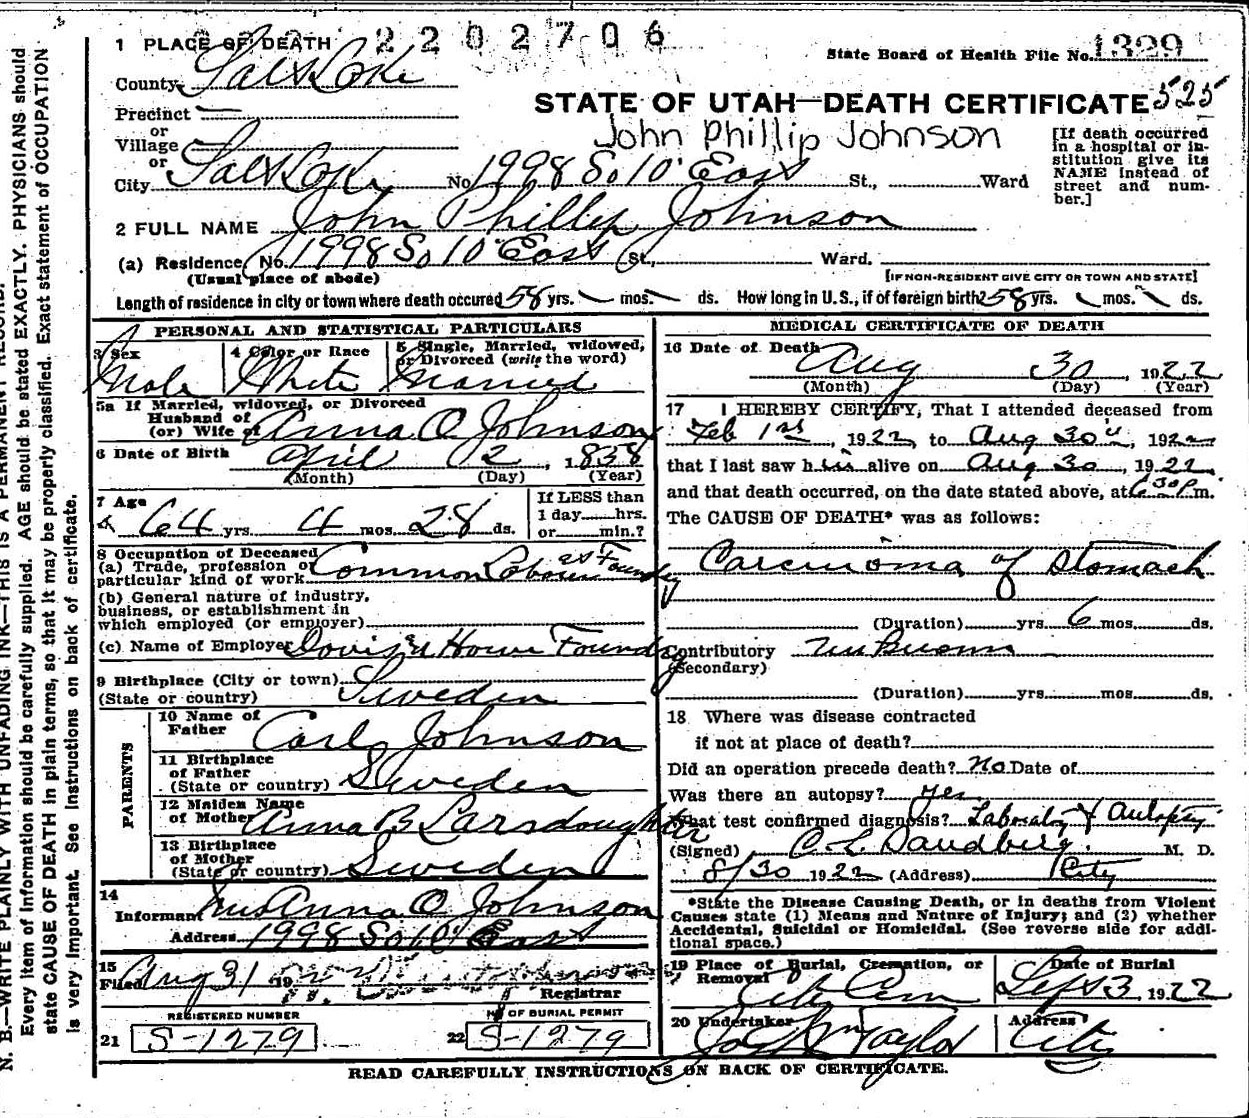 1 PLACE OF DEATH 2202706
State Board of Health File No. 1329
County Salt Lake
STATE OF UTAH—DEATH CERTIFICATE 525
Precinct
or
Village
or
John Phillip Johnson
[If death occurred in a hospital or institution give its NAME instead of street and number.]
City Salt Lake No. 1998 So 10" East St., Ward
2 FULL NAME John Phillip Johnson
(a) Residence No. 1998 So 10" East St., Ward.
(Usual place of abode) [IF NON-RESIDENT GIVE CITY OR TOWN AND STATE]
Length of residence in city or town where death occured 58 yrs. mos. ds. How long in U. S., if of foreign birth? 58 yrs. mos. ds.
PERSONAL AND STATISTICAL PARTICULARS
3 Sex Male
4 Color or Race White
5 Single, Married, widowed, or Divorced (write the word) Married
5a If Married, widowed, or Divorced
Husband of
(or) Wife of Anna O Johnson
6 Date of Birth April 2, 1858
(Month) (Day) (Year)
7 Age 64 yrs. 4 mos. 28 ds.
If LESS than
1 day hrs.
or min.?
8 Occupation of Deceased
(a) Trade, profession or
particular kind of work Common Laborer at Foundry
(b) General nature of industry,
business, or establishment in
which employed (or employer)
(c) Name of Employer Howe Foundry
9 Birthplace (City or town)
(State or country) Sweden
PARENTS
10 Name of Father Carl Johnson
11 Birthplace
of Father
(State or country) Sweden
12 Maiden Name
of Mother Anna B Larsdoughter
13 Birthplace
of Mother
(State or country) Sweden
14
Informant Mrs Anna O Johnson
Address 1998 So 10" East
15
Filed Aug 31 19
Registrar
REGISTERED NUMBER
21 S-1279
NO OF BURIAL PERMIT
22 S-1279
MEDICAL CERTIFICATE OF DEATH
16 Date of Death Aug 30 1922
(Month) (Day) (Year)
17 I HEREBY CERTIFY, That I attended deceased from
Feb 1st, 1922, to Aug 30", 1922
that I last saw him alive on Aug 30, 1922
and that death occurred, on the date stated above, at 6 30 P. m.
The CAUSE OF DEATH* was as follows:
Carcinoma of Stomach
(Duration) yrs. 6 mos. ds.
Contributory
(Secondary)
(Duration) yrs. mos. ds.
18 Where was disease contracted
if not at place of death?
Did an operation precede death? No Date of
Was there an autopsy? Yes
What test confirmed diagnosis? Laboratory & Autopsy
(Signed) C. L. Sandberg. M. D.
8/30 1922 (Address) City
*State the Disease Causing Death, or in deaths from Violent
Causes state (1) Means and Nature of Injury; and (2) whether
Accidental, Suicidal or Homicidal. (See reverse side for additional space.)
19 Place of Burial, Cremation, or Removal City Cem
Date of Burial Sept 3 1922
20 Undertaker Jos Wm Taylor
Address City
READ CAREFULLY INSTRUCTIONS ON BACK OF CERTIFICATE.
N. B.—WRITE PLAINLY WITH UNFADING INK—THIS IS A PERMANENT RECORD.
Every item of information should be carefully supplied. AGE should be stated EXACTLY. PHYSICIANS should
state CAUSE OF DEATH in plain terms, so that it may be properly classified. Exact statement of OCCUPATION
is very important. See instructions on back of certificate.